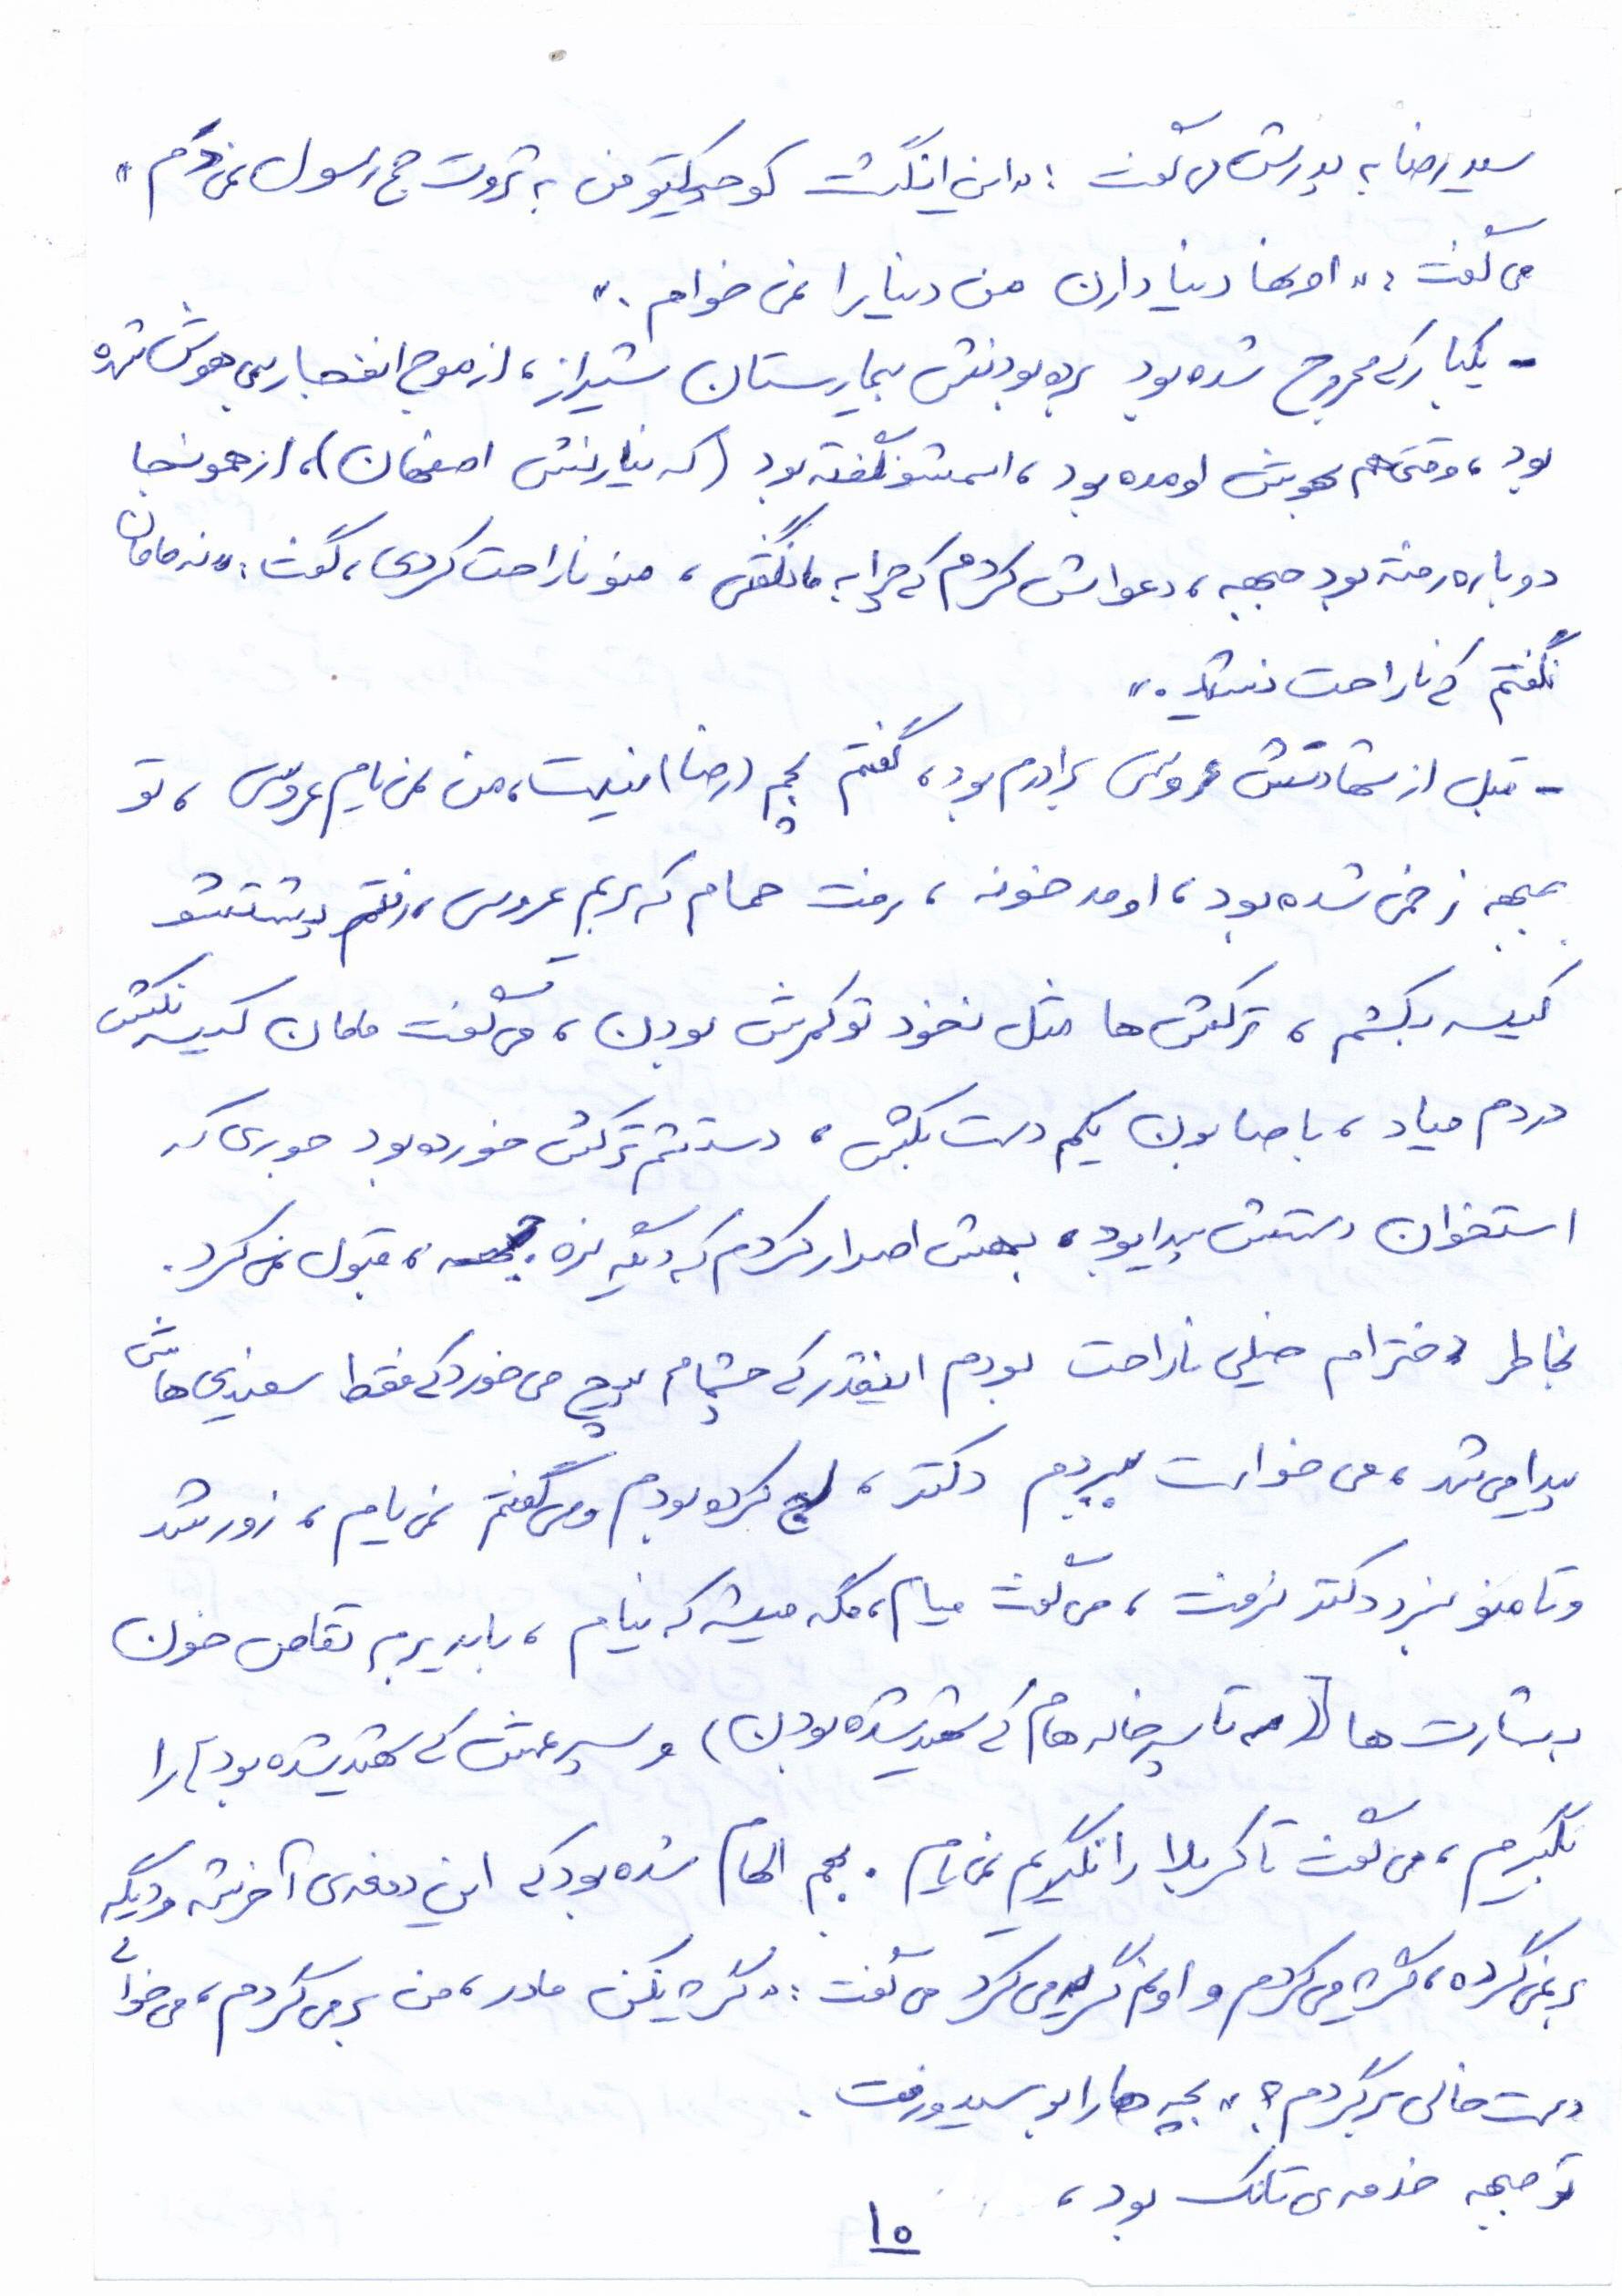 سید رضا به پدرش می‌گفت : «این انگشت کوچیکیتو من به ثروت حج رسول نمی‌دم»
می‌گفت : «اونها دنیا دارن من دنیا را نمی‌خوام .»
- یکبار که مجروح شده بود برده بودنش بیمارستان شیراز، از موج انفجار بی‌هوش شده
بود، وقتی هم بهوش اومده بود، اسمشو نگفته بود (که نیارنش اصفهان)، از همونجا
دوباره رفته بود جبهه، دعواش کردم که چرا به ما نگفتی، منو ناراحت کردی، گفت: «نه مامان
نگفتم که ناراحت نشید.»
- قبل از شهادتش عروسی برادرم بود، گفتم بچم (رضا) نیست، من نمی‌یام عروسی، تو
جبهه زخمی شده بود، اومد خونه، رفت حمام که بریم عروسی، رفتم پشتشو
کیسه بکشم، ترکش‌ها مثل نخود تو کمرش بودن، می‌گفت مامان کیسه نکش
دردم میاد، با صابون یکم دست بکش، دستشم ترکش خورده بود جوری که
استخوان دستش پیدا بود، بهش اصرار کردم که دیگه نره جبهه، قبول نمی‌کرد.
بخاطر دخترام خیلی ناراحت بودم اینقدر که چشمام پیچ می‌خورد که فقط سفیدی‌هاش
پیدا می‌شد، می‌خواست ببردم دکتر، لج کرده بودم و می‌گفتم نمی‌یام، زور شد
و تا منو نبرد دکتر نرفت، می‌گفت میام، مگه میشه که نیام، باید برم تقاص خون
بشارت‌ها [( تا پسرخاله‌هام که شهید شده بودن) و پسر عمش که شهید شده بود] را
بگیرم، می‌گفت تا کربلا را نگیریم نمی‌یام. بهم الهام شده بود که این دفعه‌ی آخرشه و دیگه
برنمی‌گرده، گریه می‌کردم و اونم گریه می‌کرد می‌گفت : «گریه نکن مادر، من برمی‌گردم، می‌خوای
دست خالی برگردم؟» بچه‌ها را بوسید و رفت .
تو جبهه خدمه‌ی تانک بود،
۱۵